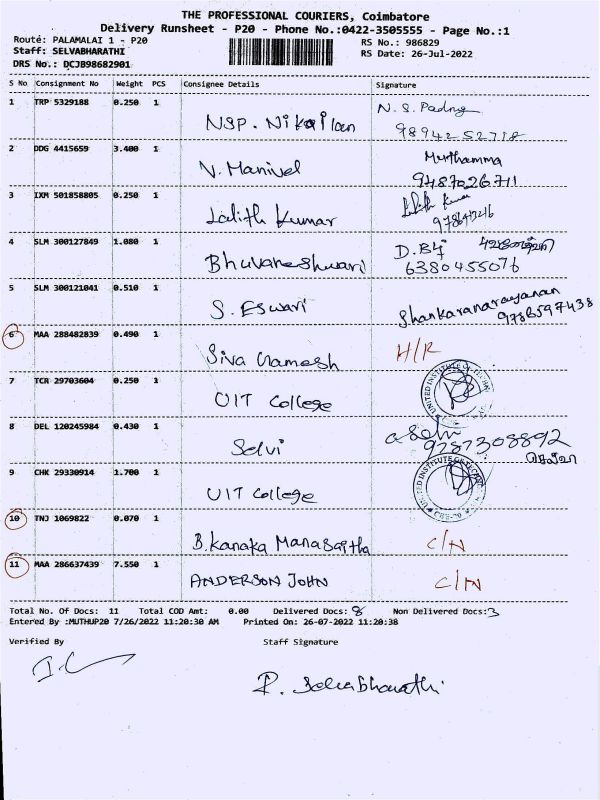 THE PROFESSIONAL COURIERS, Coimbatore
Delivery Runsheet - P20 - Phone No.:0422-3505555 - Page No.:1
Route: PALAMALAI 1 - P20 RS No.: 986829
Staff: SELVABHARATHI RS Date: 26-Jul-2022
DRS No.: DCJB98682901
S No Consignment No Weight PCS Consignee Details Signature
1 TRP 5329188 0.250 1 NSP. Nikailan N. S. Padng
9894252718
2 DDG 4415659 3.400 1 V. Manivel Muthamma
9487026711
3 IXM 501858805 0.250 1 Lalith Kumar Lalith Kumar
4 SLM 300127849 1.080 1 Bhuvaneshwari D.
6380455076
5 SLM 300121041 0.510 1 S. Eswari Shankaranarayanan
9786597438
6 MAA 288482839 0.490 1 Siva Ramesh H/R
7 TCR 29703604 0.250 1 UIT College UNITED INSTITUTE OF TECHNOLOGY
8 DEL 120245984 0.430 1 Selvi
9787308892
9 CHK 29330914 1.700 1 UIT College UNITED INSTITUTE OF TECHNOLOGY
10 TNJ 1069822 0.070 1 B. Kanaka Manasaitha C/N
11 MAA 286637439 7.550 1 ANDERSON JOHN C/N
Total No. Of Docs: 11 Total COD Amt: 0.00 Delivered Docs: 8 Non Delivered Docs: 3
Entered By :MUTHUP20 7/26/2022 11:20:30 AM Printed On: 26-07-2022 11:20:38
Verified By Staff Signature
P. Selvabharathi